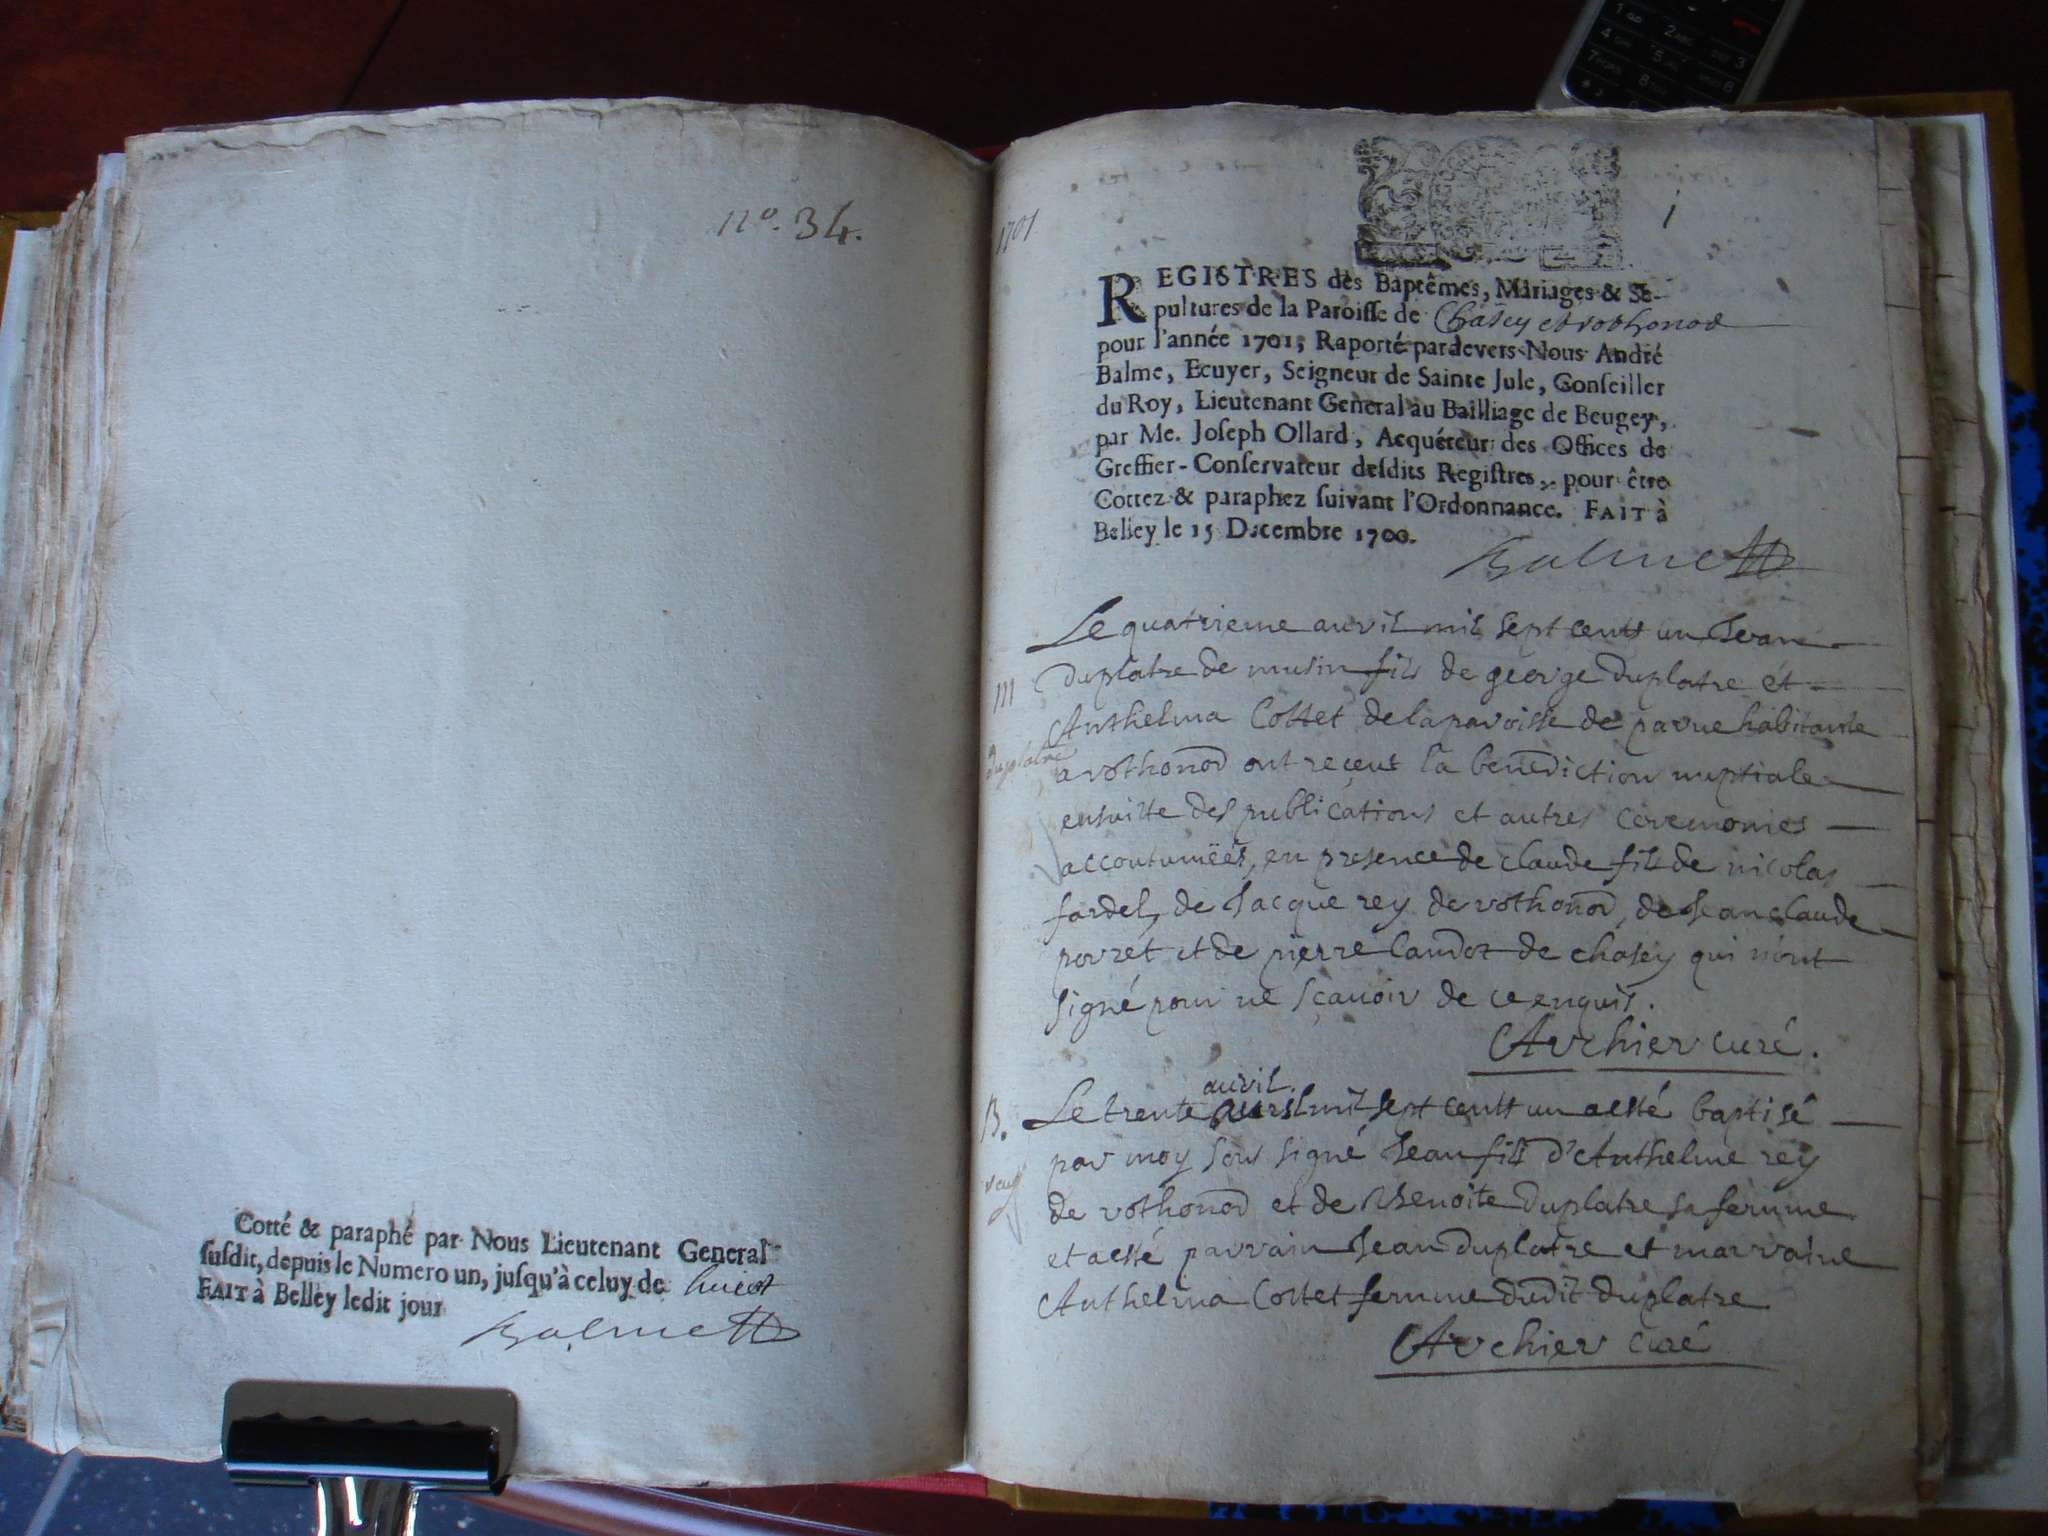 n.º 34.
Cotté & paraphé par Nous Lieutenant General
susdit, depuis le Numero un, jusqu'à celuy de huict
FAIT à Belley ledit jour
Balme
1701
i
REGISTRES des Baptêmes, Mariages & Se-
pultures de la Paroisse de Chasey et vothonod
pour l'année 1701, Raporté pardevers Nous André
Balme, Ecuyer, Seigneur de Sainte Jule, Conseiller
du Roy, Lieutenant General au Bailliage de Beugey,
par Me. Joseph Ollard, Acquéreur des Offices de
Greffier-Conservateur desdits Registres, pour être
Cottez & paraphez suivant l'Ordonnance. FAIT à
Belley le 15 Decembre 1700.
Balme
Le quatrieme auvil mil sept cents un Jean
m Duplatre de musin fils de george Duplatre et
Anthelma Cottet de la paroisse de parue habitante
duplatre
a vothonod ont reçeut la benediction nuptiale
ensuitte des publications et autres ceremonies
accoutumëes, en presence de claude fils de nicolas
fardel, de Jacque rey de vothonod, de Jean claude
porret et de pierre Caudoz de chasey qui n'ont
signé pour ne sçauoir de ce enquis.
Archier curé.
auvil.
B. Le trente mil sept cents un a esté baptisé
par moy sous signé Jean fils d'Anthelme rey
rey
de vothonod et de Benoite Duplatre sa femme
et a esté parrain Jean duplatre et marraine
Anthelma Cottet femme dudit duplatre
Archier curé